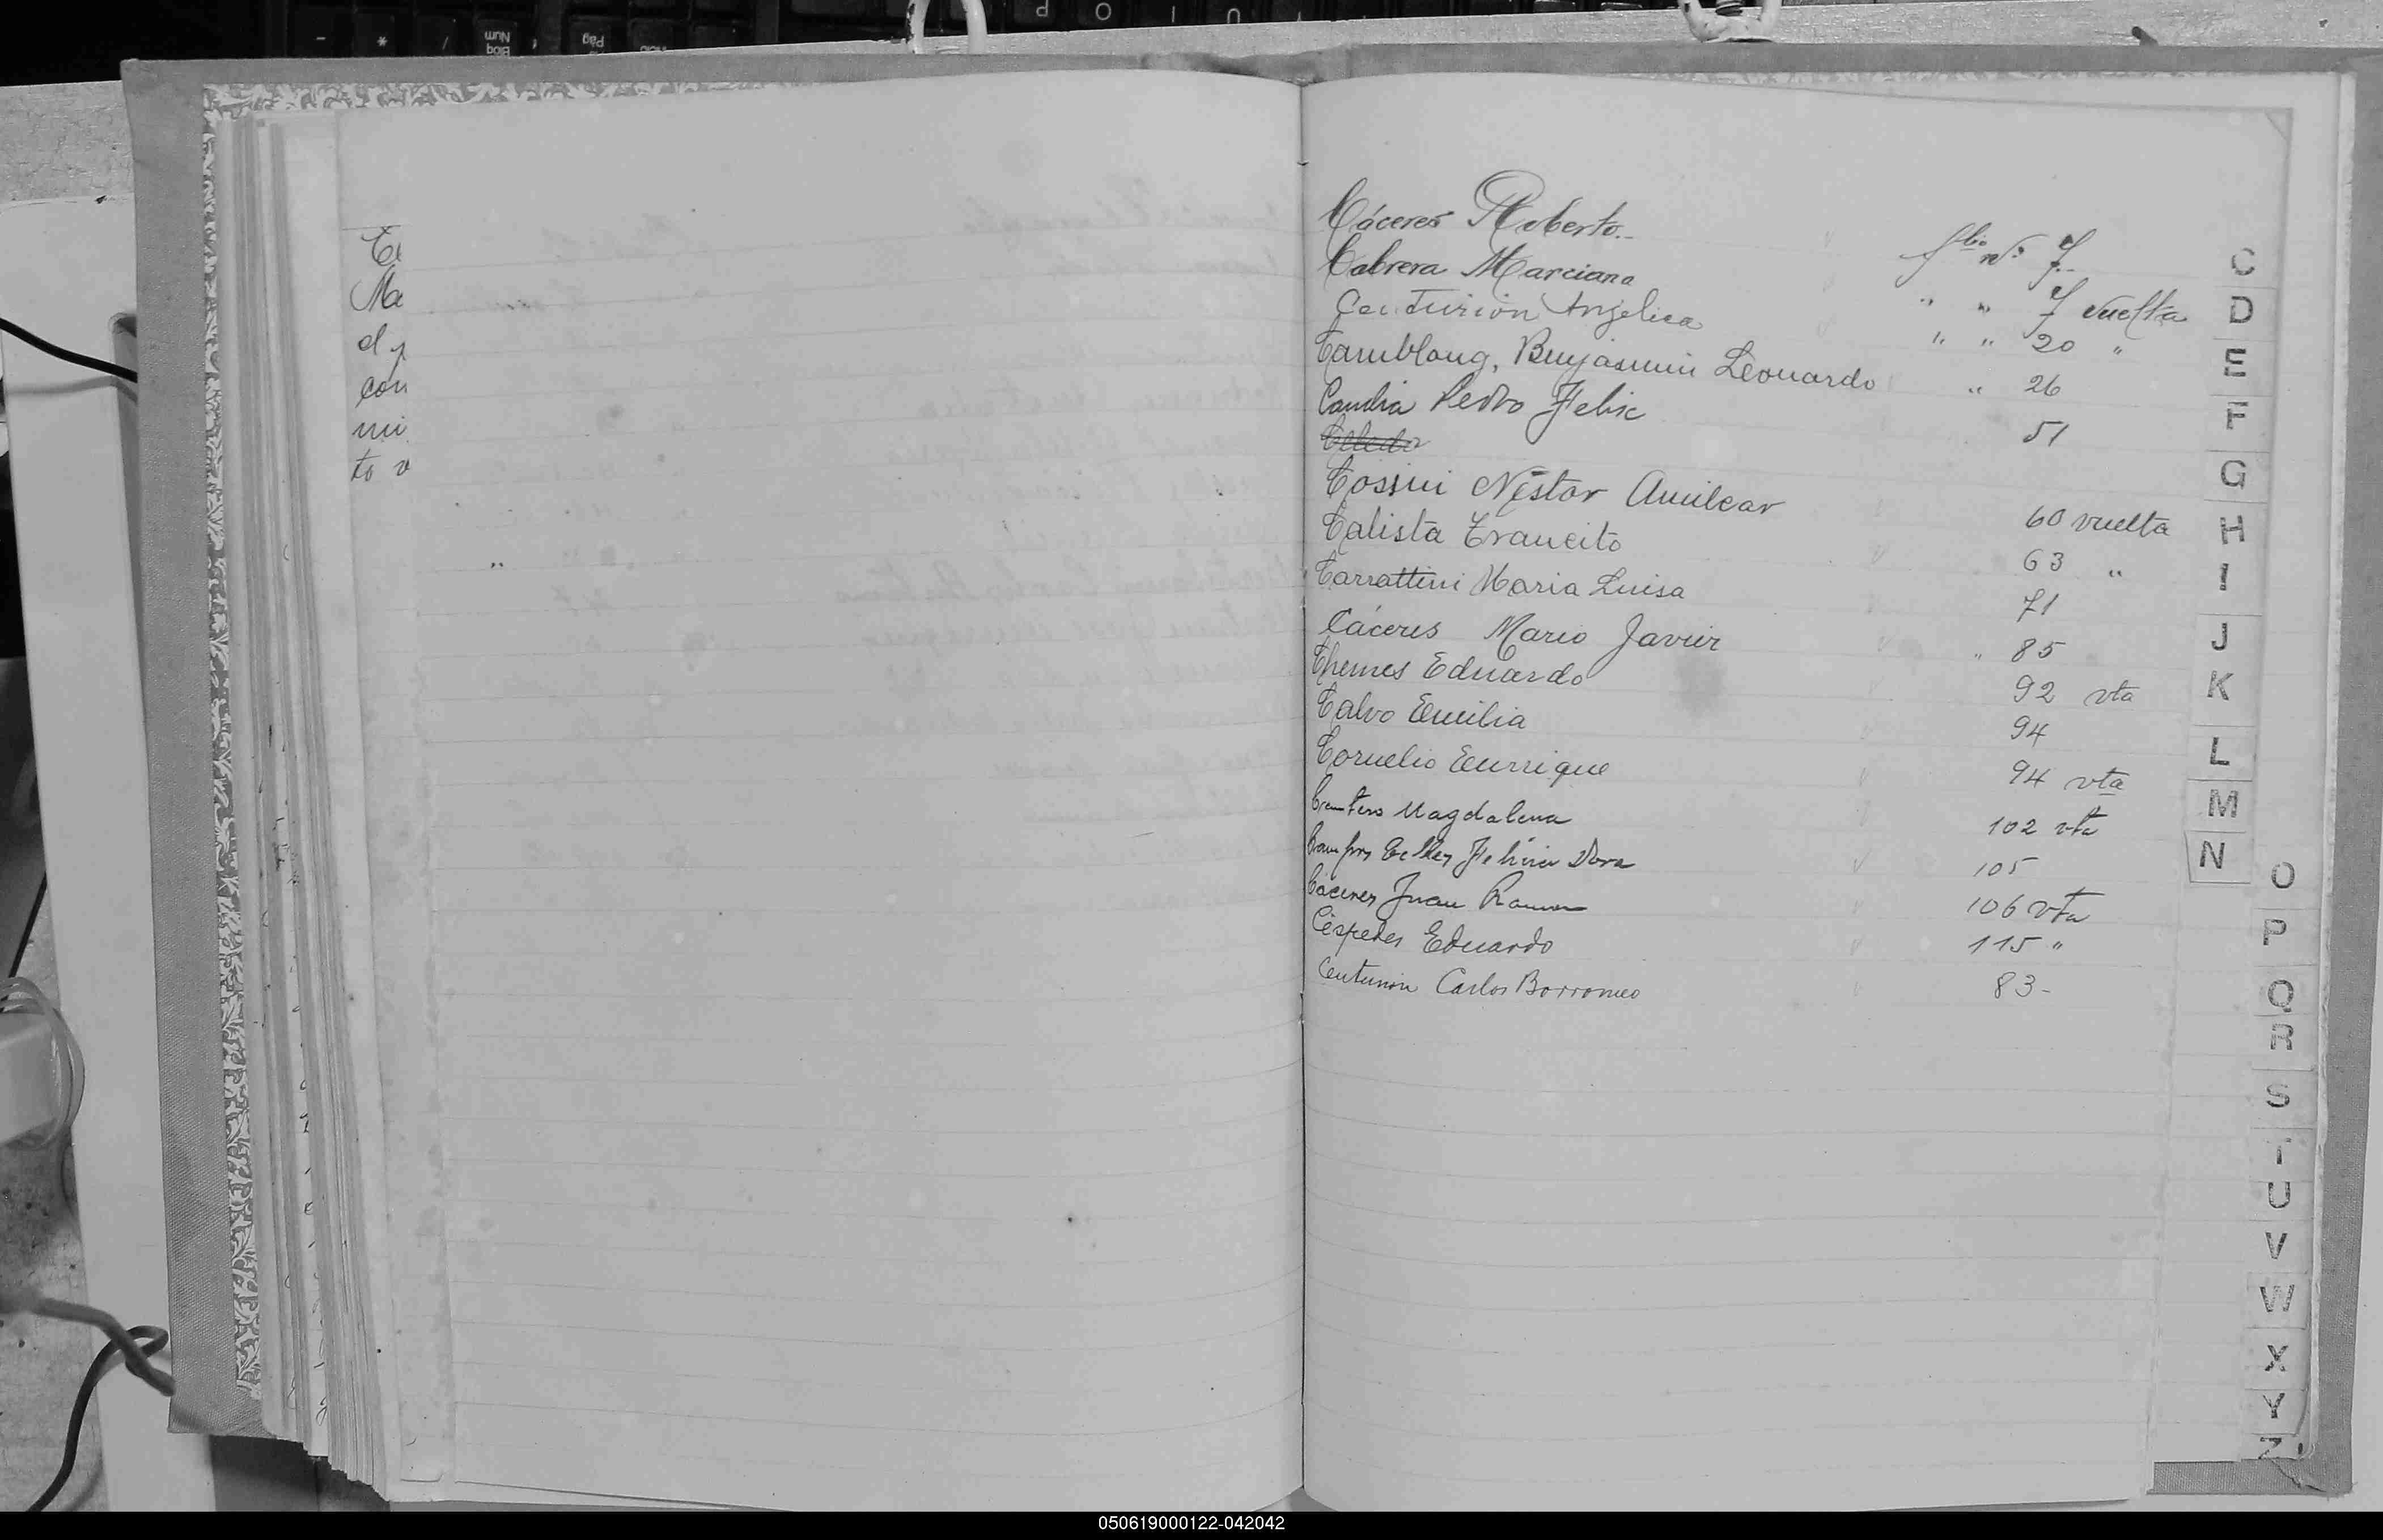 Cáceres Roberto.- folio Nº 7.-
Cabrera Marciana " " 7 vuelta
Centurión Angelica " " 20 "
Camblong, Benjamin Leonardo " 26
Candia Pedro Felix 51
Cossini Néstor Amilcar 60 vuelta
Calista Trancito 63 "
Carrattini Maria Luisa 71
Cáceres Mario Javier " 85
Chemes Eduardo 92 vta
Calvo Emilia 94
Cornelio Enrrique 94 vta
Magdalena 102 vta
105
Cáceres Juan Ramon 106 vta
Céspedes Eduardo 115 "
Centurion Carlos Borromeo 83-
C
D
E
F
G
H
I
J
K
L
M
N
O
P
Q
R
S
T
U
V
W
X
Y
Z
Ma
con
mi
to v
Bloq Num
050619000122-042042